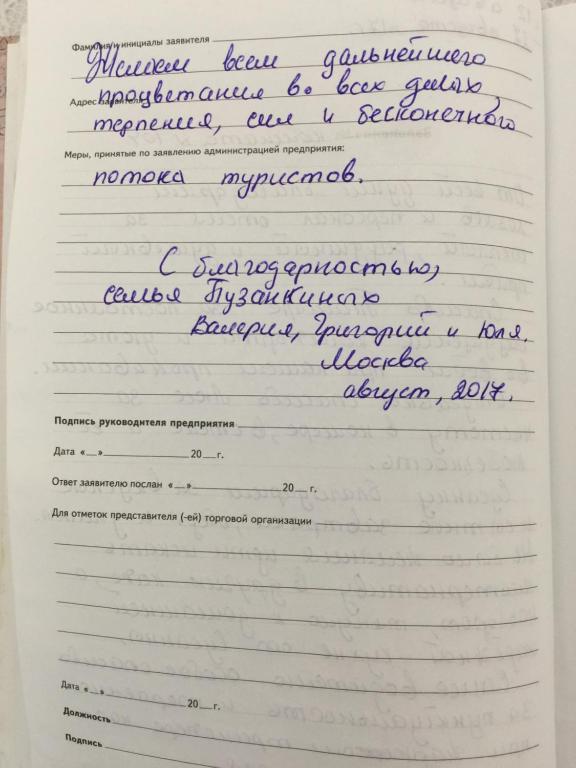 Фамилия и инициалы заявителя
Желаем всем дальнейшего
процветания во всех делах,
Адрес заявителя
терпения, сил и бесконечного
Меры, принятые по заявлению администрацией предприятия:
потока туристов.
С благодарностью,
семья Пузанкиных
Валерия, Григорий и Юля.
Москва
август, 2017.
Подпись руководителя предприятия
Дата «__»____________20__г.
Ответ заявителю послан «__»____________20__г.
Для отметок представителя (-ей) торговой организации
Дата «__»____________20__г.
Должность
Подпись